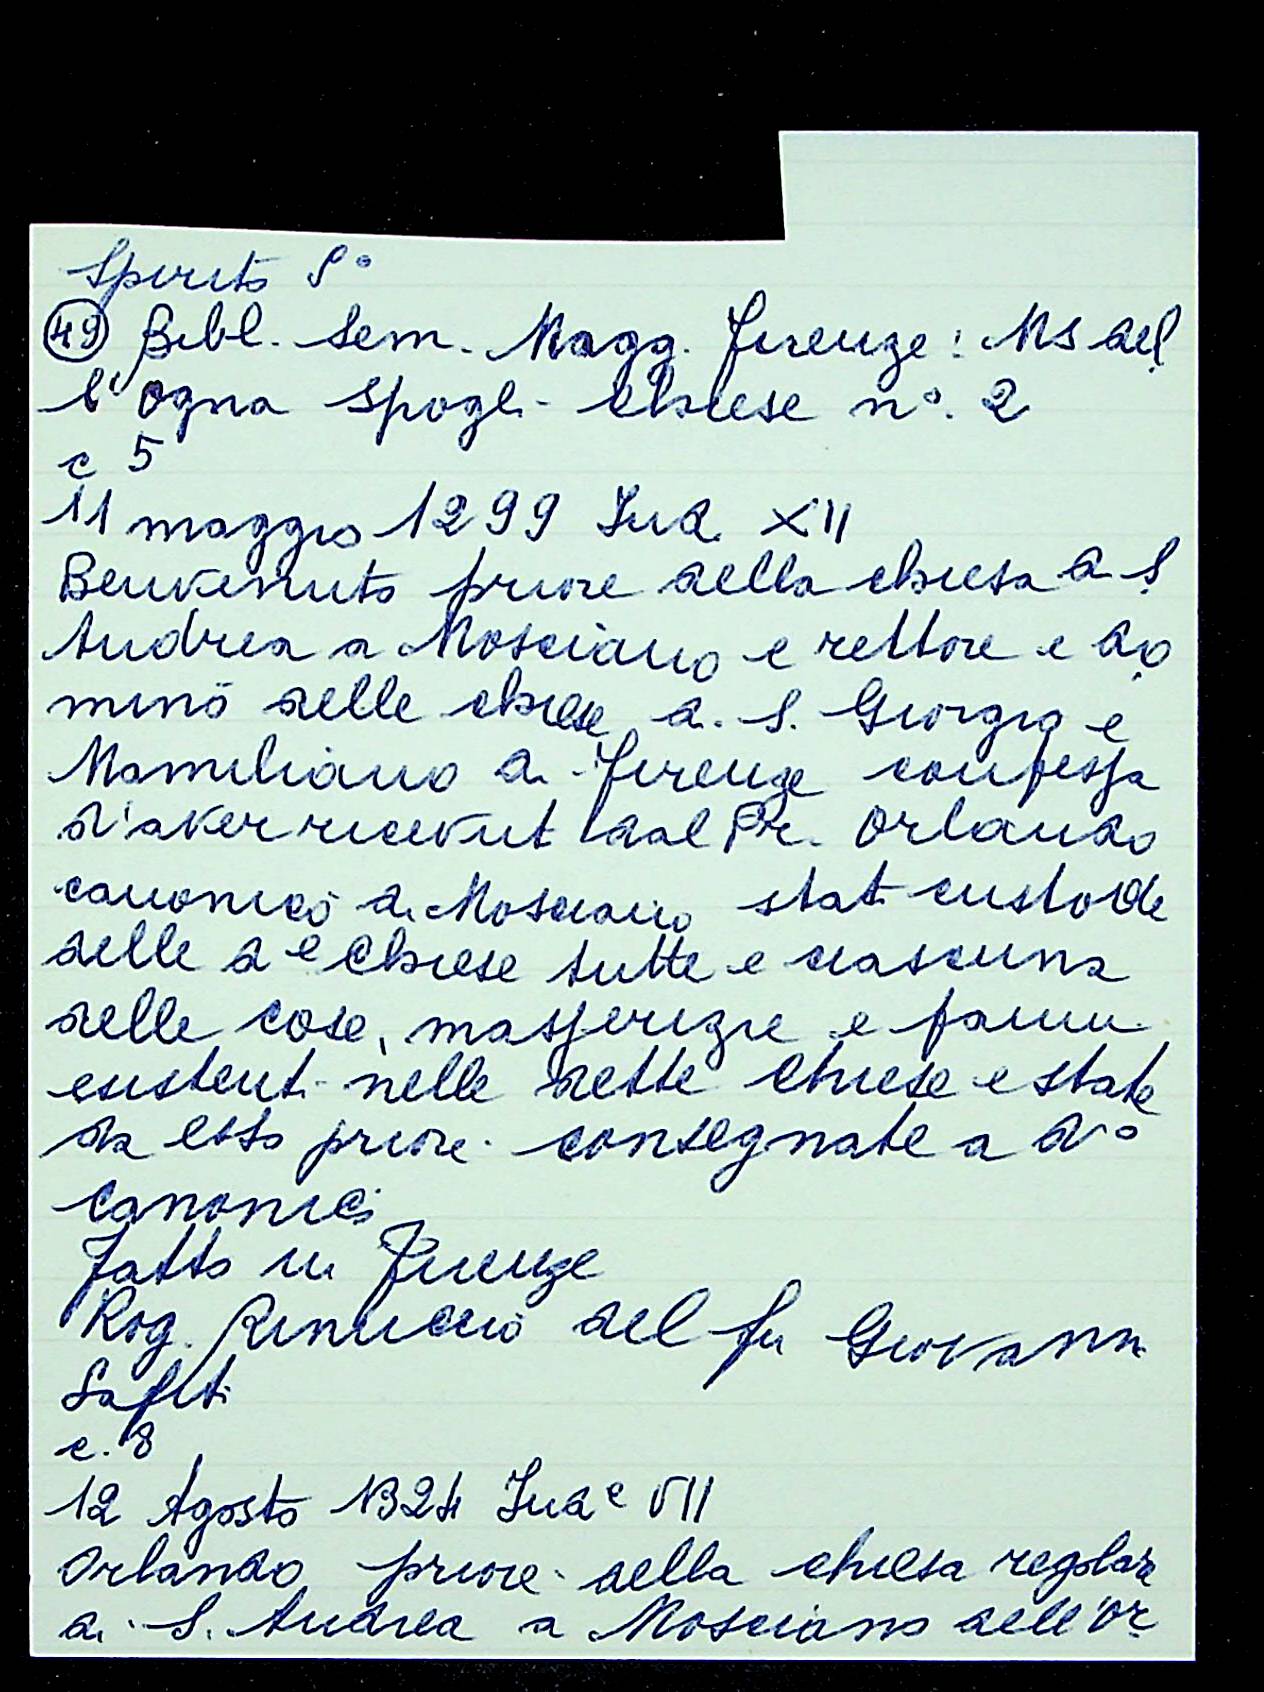 Spirito S°
49 Bibl. Sem. Magg. Firenze: MS del
l'Ogna Spogli Chiese n°. 2
c 5
11 maggio 1299 Ind. XII
Benvenuto priore della chiesa di S.
Andrea a Mosciano e rettore e do
mino delle chiese di S. Giorgio e
Mamiliano di Firenze confessa
d'aver ricevut dal Pr. Orlando
canonico di Mosciano stati custode
delle de Chiese tutte e ciascuna
delle cose, masserizie e panni
esistenti nelle dette Chiese e state
da esso priore consegnate a do
canonici
Fatto in Firenze
Rog. Rinuccio del fu Giovanni
c. 8
12 Agosto 1324 Inde VII
Orlando priore della chiesa regolare
di S. Andrea a Mosciano dell'Or